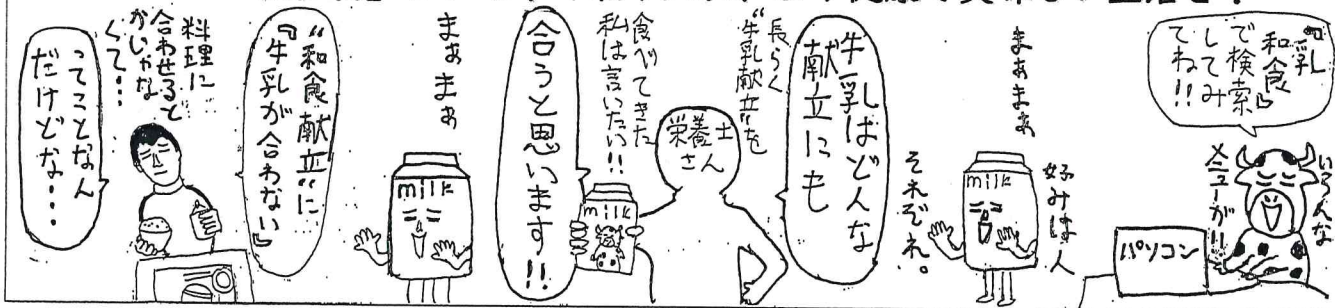 『乳
和食』
で検索
してみ
てね!!
いろんな
メニューが!!
パソコン
まあまあ
好みは人
それぞれ。
milk
牛乳はどんな
献立にも
長らく
“牛乳献立”を
食べてきた
私は言いたい!!
栄養士
さん
milk
合うと思います!!
まぁまぁ
milk
“和食献立”に
『牛乳が合わない』
料理に
合わせると
かじゃな
くて・・・
ってことなん
だけどな・・・